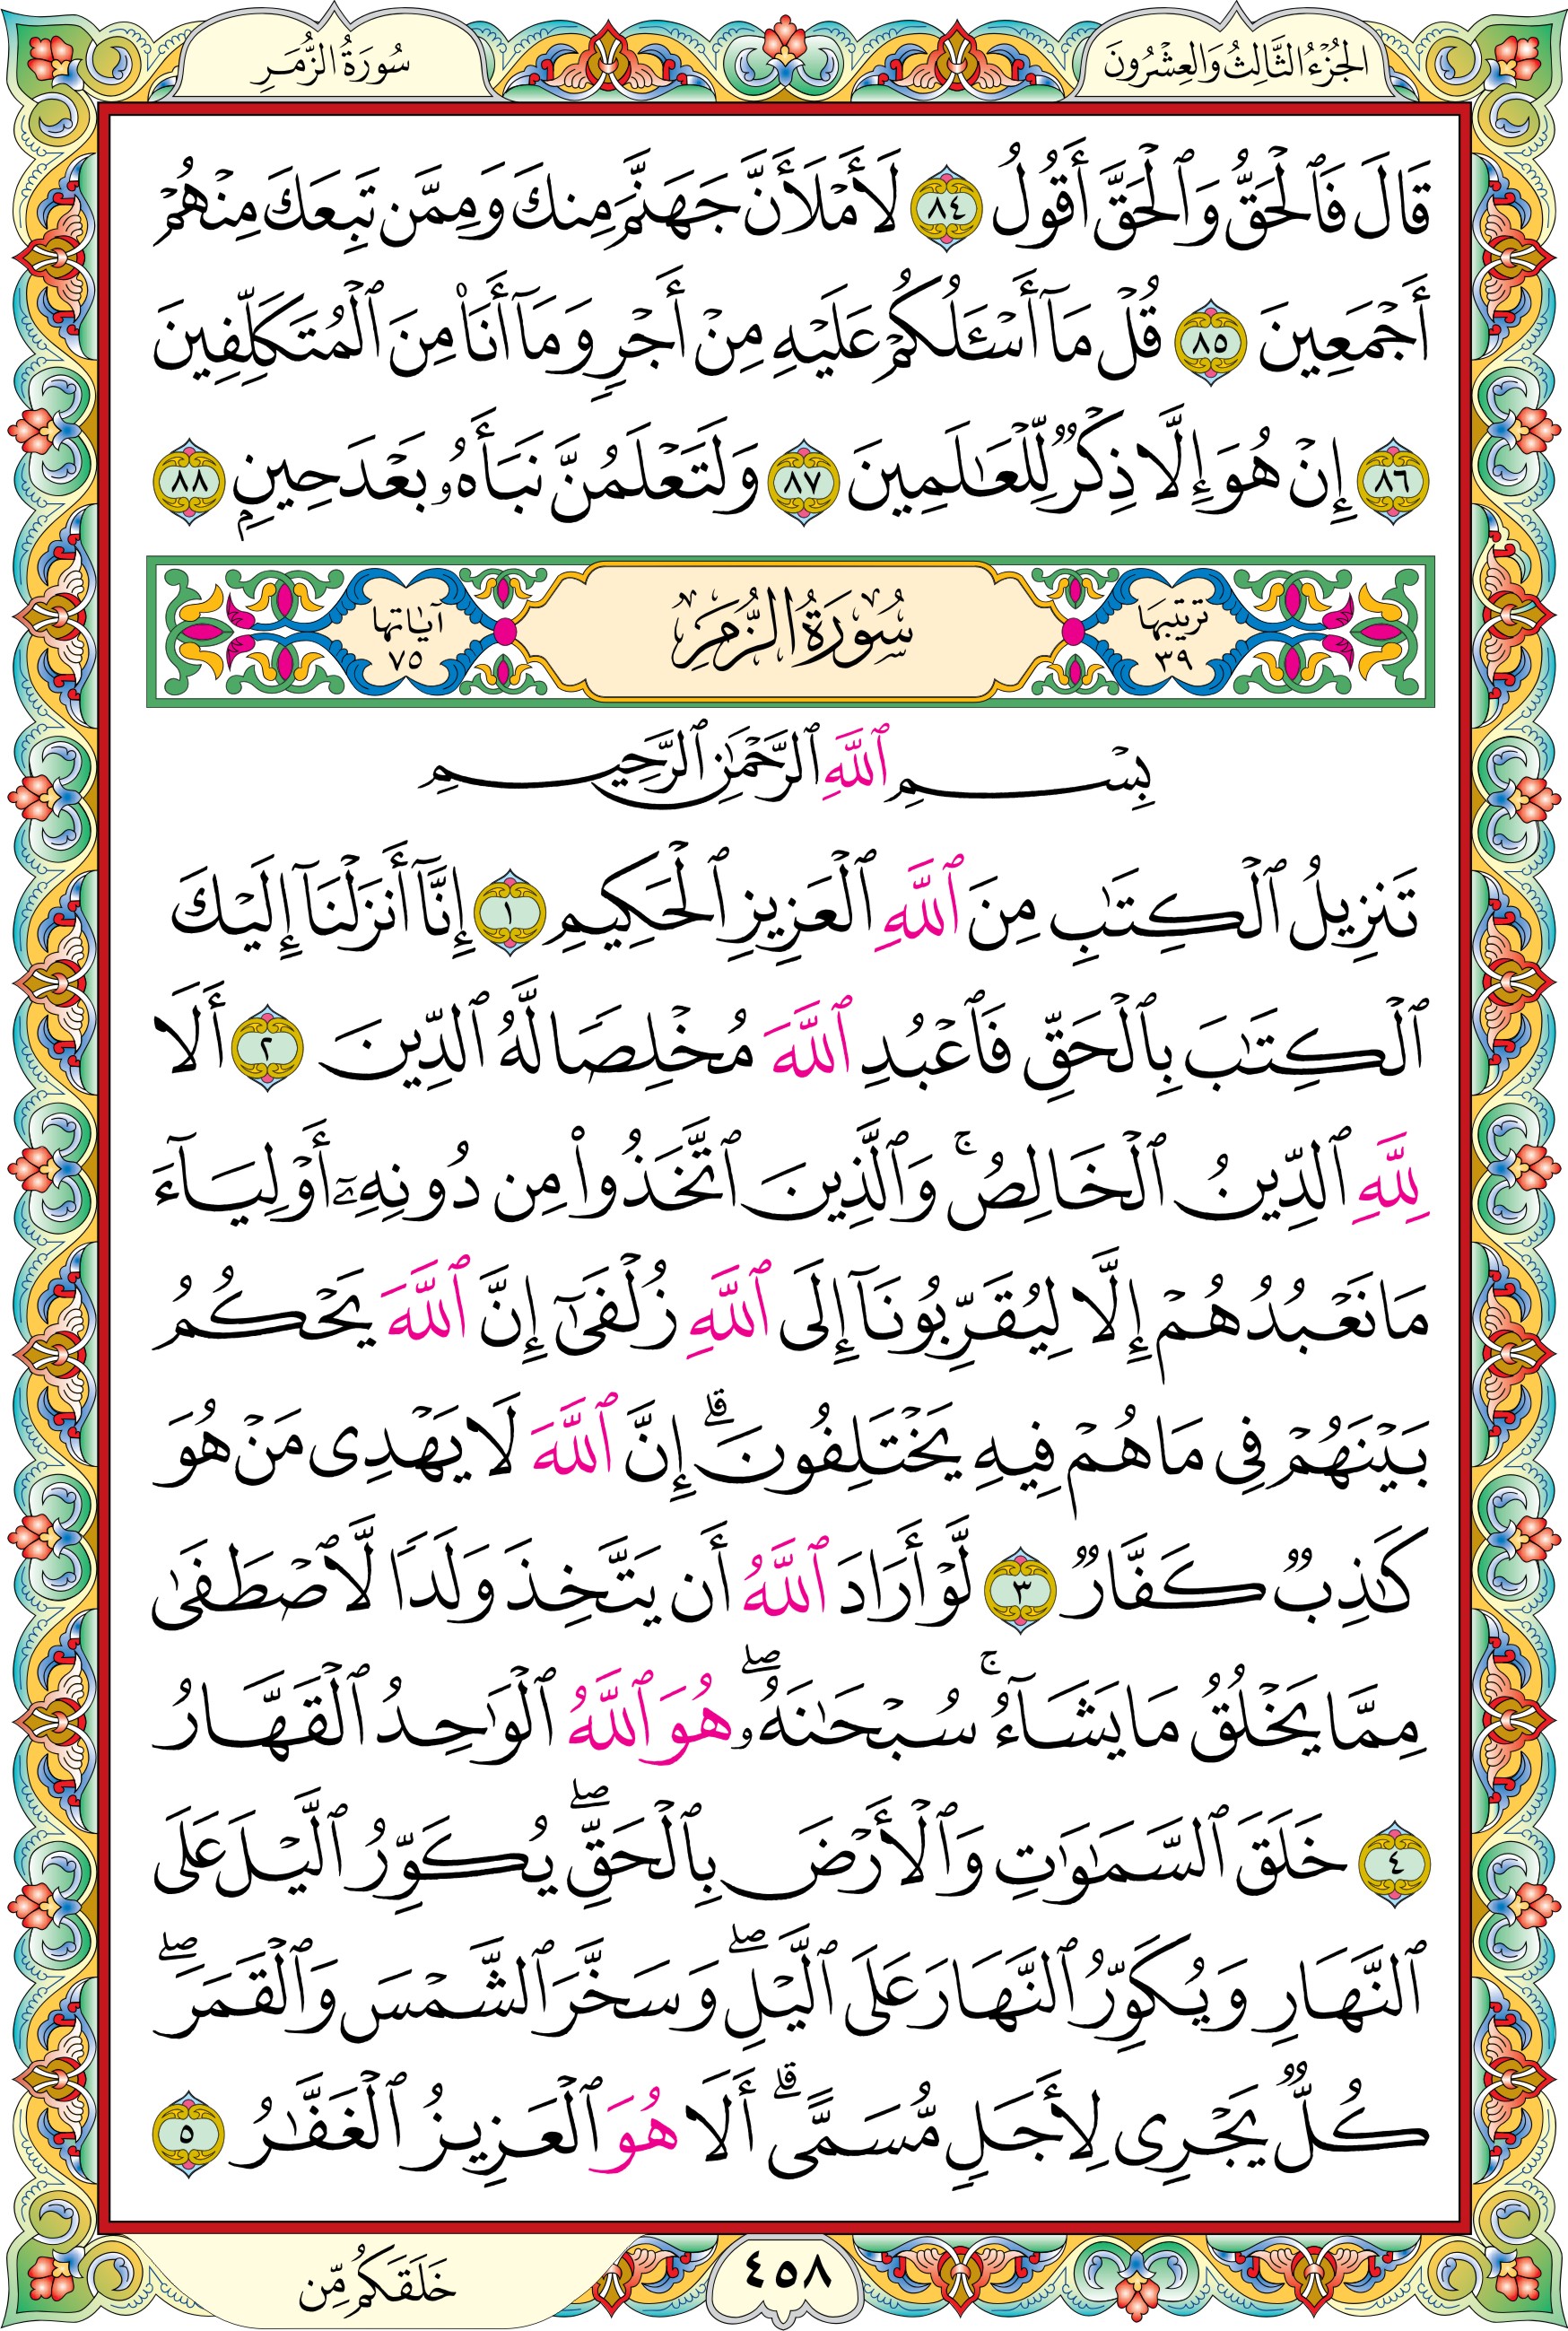 الجُزْءُ الثَّالِثُ وَالعِشْرُونَ
سُورَةُ الزُّمَرِ
قَالَ فَٱلْحَقُّ وَٱلْحَقَّ أَقُولُ ٨٤ لَأَمْلَأَنَّ جَهَنَّمَ مِنكَ وَمِمَّن تَبِعَكَ مِنْهُمْ
أَجْمَعِينَ ٨٥ قُلْ مَآ أَسْـَٔلُكُمْ عَلَيْهِ مِنْ أَجْرٍ وَمَآ أَنَا۠ مِنَ ٱلْمُتَكَلِّفِينَ
٨٦ إِنْ هُوَ إِلَّا ذِكْرٌ لِّلْعَـٰلَمِينَ ٨٧ وَلَتَعْلَمُنَّ نَبَأَهُۥ بَعْدَ حِينٍۭ ٨٨
ترتيبها ٣٩ سُورَةُ الزُّمَرِ آياتها ٧٥
بِسْمِ ٱللَّهِ ٱلرَّحْمَـٰنِ ٱلرَّحِيمِ
تَنزِيلُ ٱلْكِتَـٰبِ مِنَ ٱللَّهِ ٱلْعَزِيزِ ٱلْحَكِيمِ ١ إِنَّآ أَنزَلْنَآ إِلَيْكَ
ٱلْكِتَـٰبَ بِٱلْحَقِّ فَٱعْبُدِ ٱللَّهَ مُخْلِصًا لَّهُ ٱلدِّينَ ٢ أَلَا
لِلَّهِ ٱلدِّينُ ٱلْخَالِصُ ۚ وَٱلَّذِينَ ٱتَّخَذُوا۟ مِن دُونِهِۦٓ أَوْلِيَآءَ
مَا نَعْبُدُهُمْ إِلَّا لِيُقَرِّبُونَآ إِلَى ٱللَّهِ زُلْفَىٰٓ إِنَّ ٱللَّهَ يَحْكُمُ
بَيْنَهُمْ فِى مَا هُمْ فِيهِ يَخْتَلِفُونَ ۗ إِنَّ ٱللَّهَ لَا يَهْدِى مَنْ هُوَ
كَـٰذِبٌ كَفَّارٌ ٣ لَّوْ أَرَادَ ٱللَّهُ أَن يَتَّخِذَ وَلَدًا لَّٱصْطَفَىٰ
مِمَّا يَخْلُقُ مَا يَشَآءُ ۚ سُبْحَـٰنَهُۥ ۖ هُوَ ٱللَّهُ ٱلْوَٰحِدُ ٱلْقَهَّارُ
٤ خَلَقَ ٱلسَّمَـٰوَٰتِ وَٱلْأَرْضَ بِٱلْحَقِّ ۖ يُكَوِّرُ ٱلَّيْلَ عَلَى
ٱلنَّهَارِ وَيُكَوِّرُ ٱلنَّهَارَ عَلَى ٱلَّيْلِ ۖ وَسَخَّرَ ٱلشَّمْسَ وَٱلْقَمَرَ ۖ
كُلٌّ يَجْرِى لِأَجَلٍ مُّسَمًّى ۗ أَلَا هُوَ ٱلْعَزِيزُ ٱلْغَفَّـٰرُ ٥
٤٥٨
خَلَقَكُم مِّن